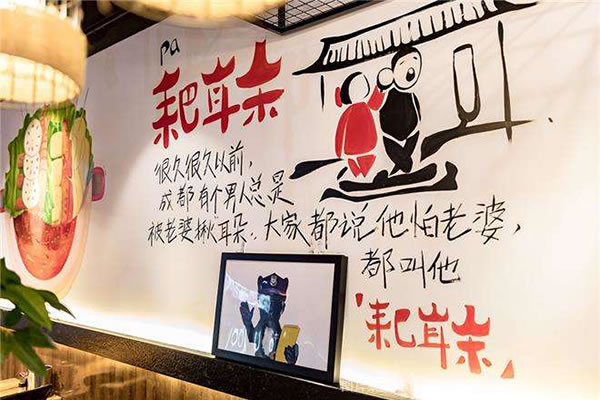 pa
耙耳朵
很久很久以前,
成都有个男人总是
被老婆揪耳朵.大家都说他怕老婆,
都叫他
'耙耳朵,